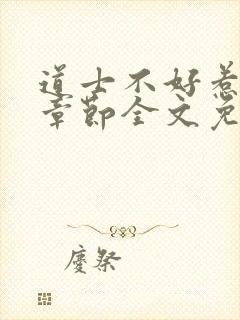 道士不好惹
章節全文免
慶祭